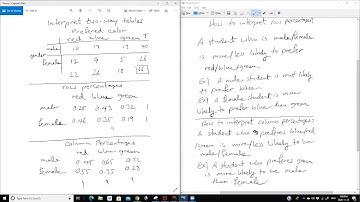 Interpret two-way tables
Preferred color
red blue green T
gender
male 10 17 13
female 12 9 5 26
22 26 18 66
row percentages
red blue green
male 0.25 0.43 0.32 1
female 0.46 0.35 0.19 1
Column Percentages
red blue green
male 0.45 0.65 0.72
female 0.55 0.35 0.28
1 1 1
How to interpret row percentages
A student who is male/female
is more/less likely to prefer
red/blue/green.
Ex) A male student is most likely
to prefer blue.
Ex) A female student is more
likely to prefer blue than green
How to interpret column percentages
A student who prefers blue/red
/green is more/less likely to be
male/female.
Ex) A student who prefers green
is more likely to be male
than female.